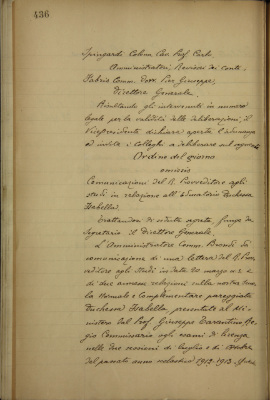 436
Spingardi Colonn. Cav. Prof. Carlo
Amministratori, Revisori dei conti.
Fabrio Comm. Dott. Pier Giuseppe,
Direttore Generale.
Risultando gli intervenuti in numero
legale per la validità delle deliberazioni, il
Vicepresidente dichiara aperta l'adunanza
ed invita i colleghi a deliberare sul seguente
Ordine del giorno
omissis
Comunicazioni del R. Provveditore agli
studi in relazione all'Educatorio Duchessa
Isabella.
Trattandosi di seduta segreta, funge da
Segretario il Direttore Generale.
L'Amministratore Comm. Brondi dà
comunicazione di una lettera del R. Prov
veditore agli studi in data 20 marzo u.s. e
di due annesse relazioni sulla nostra Scuo
la Normale e Complementare pareggiata
Duchessa Isabella, presentate al Mi
nistero dal Prof. Giuseppe Tarantino Re
gio Commissario agli esami di licenza
nelle due sessioni di luglio e di ottobre
del passato anno scolastico 1912-1913.